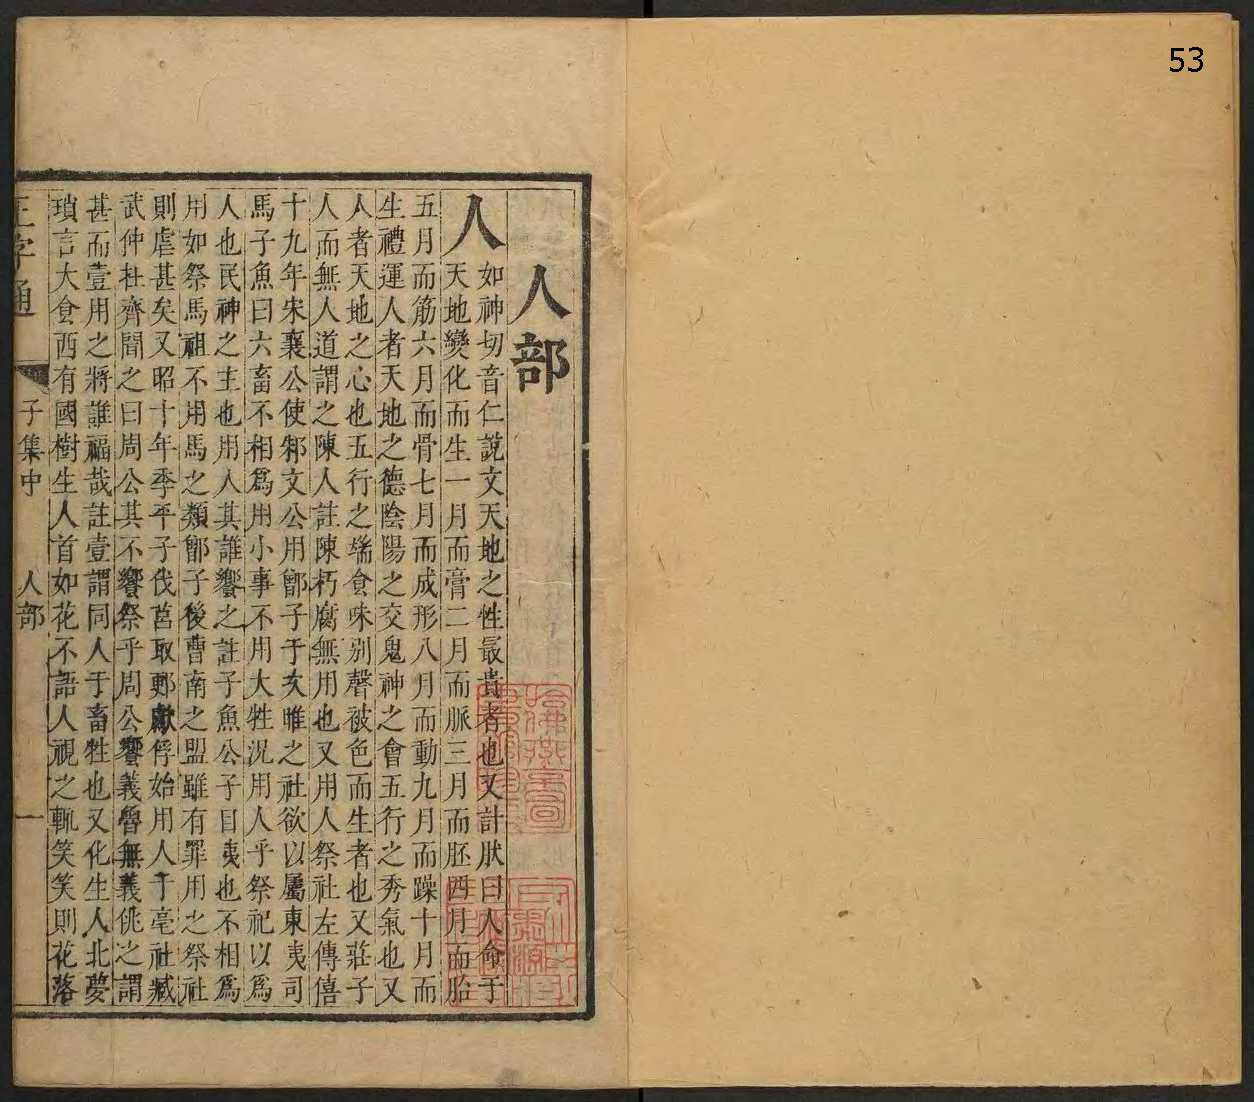 53
人部
人
如神切音仁說文天地之性最貴者也又計然曰人命于
天地變化而生一月而膏二月而脈三月而胚四月而胎
五月而筋六月而骨七月而成形八月而動九月而躁十月而
生禮運人者天地之德陰陽之交鬼神之會五行之秀氣也又
人者天地之心也五行之端食味別聲被色而生者也又莊子
人而無人道謂之陳人註陳朽腐無用也又用人祭社左傳僖
十九年宋襄公使邾文公用鄫子于次睢之社欲以屬東夷司
馬子魚曰六畜不相爲用小事不用大牲況用人乎祭祀以爲
人也民神之主也用人其誰饗之註子魚公子目夷也不相爲
用如祭馬祖不用馬之類鄫子後曹南之盟雖有罪用之祭社
則虐甚矣又昭十年季平子伐莒取郠獻俘始用人于亳社臧
武仲杜齊聞之曰周公其不饗祭乎周公饗義魯無義佻之謂
甚而壹用之將誰福哉註壹謂同人于畜牲也又化生人北夢
瑣言大食西有國樹生人首如花不語人視之輒笑笑則花落
正字通
子集中
人部
一